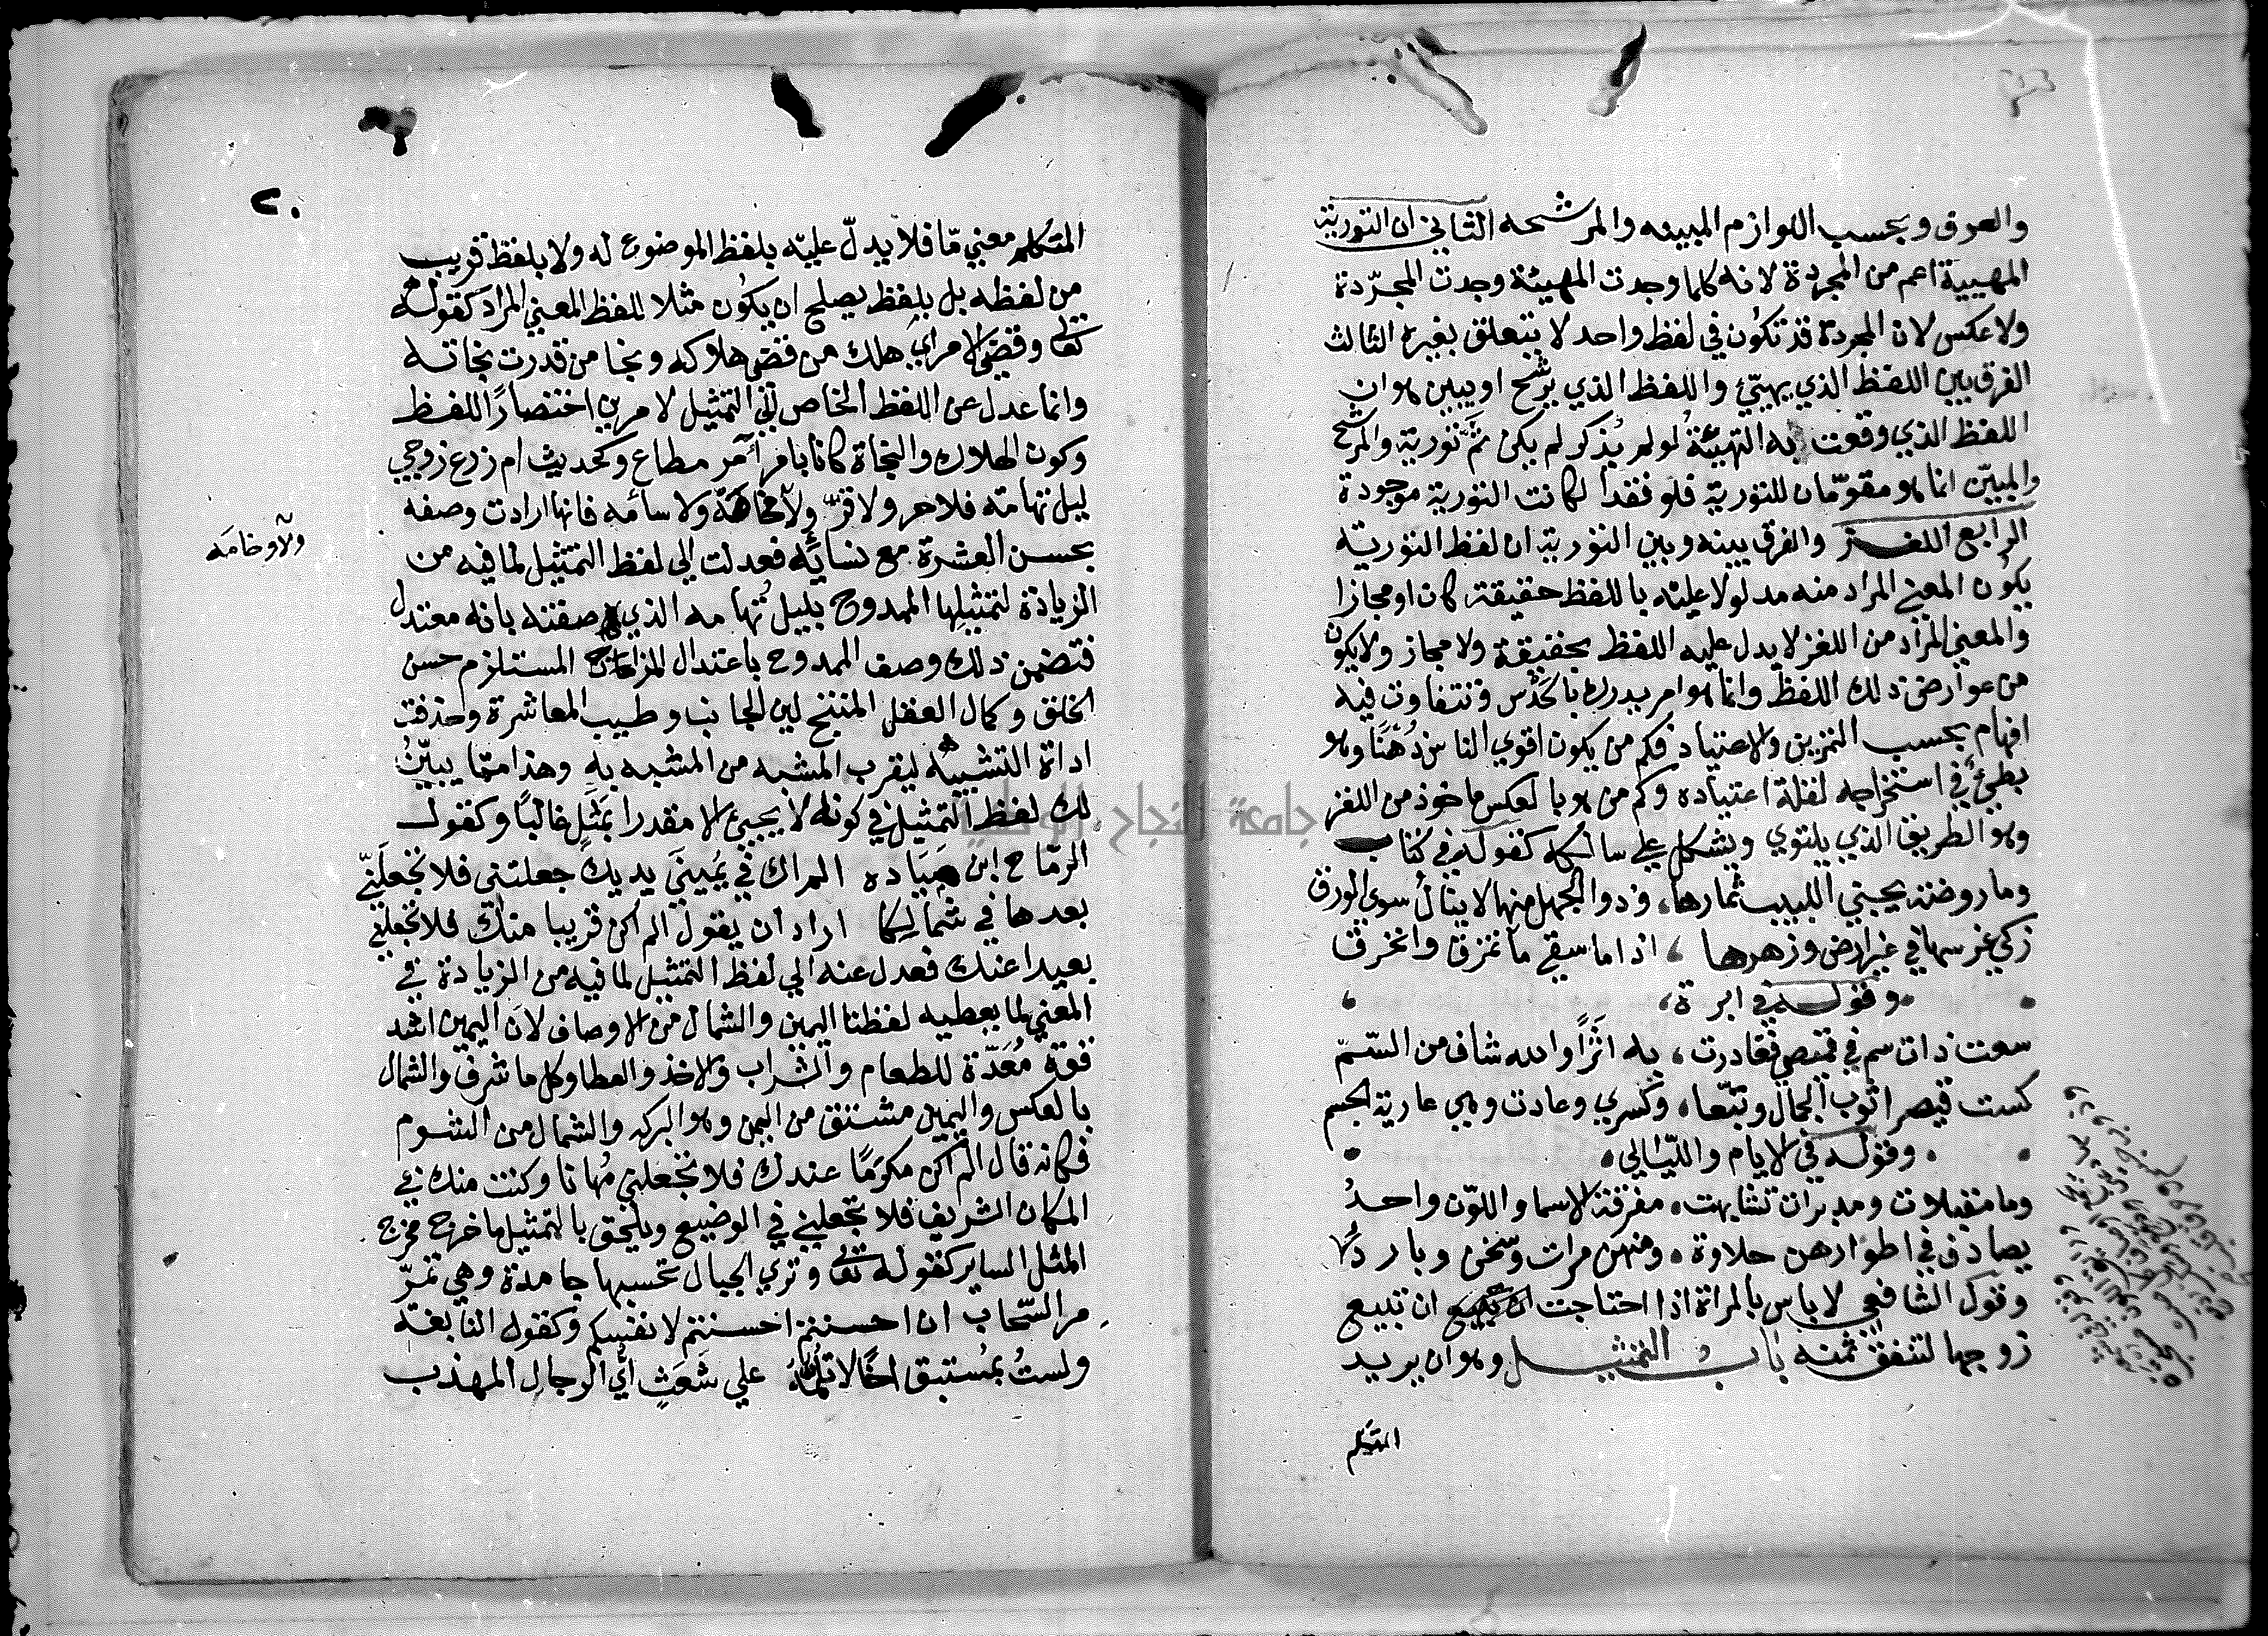 والعرق وبحسب اللوازم المبينه والمرشحه الثاني ان التورية
المهيية اعم من المجردة لانه كلما وجدت المهيئة وجدت المجرّدة
ولا عكس لان المجردة قد تكون في لفظ واحد لا يتعلق بغيره الثالث
الفرق بين اللفظ الذي يهيّئ واللفظ الذي يرشح او يبين هو ان
اللفظ الذي وقعت به التهيئة لو لم يذكر لم يكن ثَمَّ تورية والمرشح
والمبيّن انما هو مقوّمان للتورية فلو فقدا لكانت التورية موجودة
الرابع اللغز والفرق بينه وبين التورية ان لفظ التورية
يكون المعنى المراد منه مدلولا عليه باللفظ حقيقة كان او مجازا
والمعني المراد من اللغز لا يدل عليه اللفظ بحقيقة ولا مجاز ولا يكون
من عوارض ذلك اللفظ وانما هو امر يدرك بالحَدْس وتتفاوت فيه
افهام بحسب التمرين والاعتياد فكم من يكون اقوي الناس ذهنًا وهو
بطيئ في استخراجه لقلة اعتياده وكم من هو بالعكس ماخوذ من اللغز
وهو الطريق الذي يلتوي ويشكل علي سالكه كقوله في كتاب
وما روضة يجتني اللبيب ثمارها، وذو الجهل منها لا ينال سوي الورق
زكي غرسها في غير ارض وزهرها ، اذا ما سقي ماتمزق وانخرق
وقوله في ابرة،
سعت ذات سم في قميصي فغادرت ، به اثرًا والله شاف من السّمّ
كست قيصرا ثوب الجمال وتبّعا، وكسري وعادت وهي عارية الجسم
وقوله في الايام والليالي،
وما مقبلات ومدبرات تشابهت، مفرقة الاسما واللون واحدُ
يصادف في اطوارهن حلاوة، ومنهن مرات وسخن وباردُ
وقول الشافعي لا باس بالمراة اذا احتاجت ان تبيع
زوجها لتنفق ثمنه بابُ التمثيل وهو ان يريد
المتكلم
٢٠
المتكلم معني مّا فلا يدلّ عليه بلفظ الموضوع له ولا بلفظ قريب
من لفظه بل بلفظ يصلح ان يكون مثلا للفظ المعني المراد كقوله
تعالى وقضي الامر اي هلك من قضي هلاكه ونجا من قدرت نجاته
وانما عدل عن اللفظ الخاص الي التمثيل لامرين اختصارًا للفظ
وكون الهلاك والنجاة كانا بامر آمر مطاع وكحديث ام زرع زوجي
ليل تهامة فلا حر ولا قرّ ولا مخافة ولا سأمه فانها ارادت وصفه
ولا وخامه
بحسن العشرة مع نسائه فعدلت الي لفظ التمثيل لما فيه من
الزيادة لتمثيلها الممدوح بليل تهامه الذي صفته بانه معتدل
فتضمن ذلك وصف الممدوح باعتدال المزاج المستلزم حسن
الخلق وكمال العقل المنتج لين الجانب وطيب المعاشرة وحذفت
اداة التشبيه ليقرب المشبه من المشبه به وهذا ممّا يبيّنُ
لك لفظ التمثيل في كونه لا يجيئ الا مقدرا بمَثَل غالبًا وكقول
الرمّاح ابن ميّاده الم اك في يُمنَي يديك جعلتني فلا تجعلنّي
بعدها في شمالكا اراد ان يقول الم اكن قريبا منك فلا تجعلني
بعيدا عنك فعدل عنه الي لفظ التمثيل لما فيه من الزيادة في
المعني لما يعطيه لفظتا اليمين والشمال من الاوصاف لان اليمين اشد
قوة مُعَدّة للطعام والشراب والاخذ والعطا وكل ما شرف والشمال
بالعكس واليمين مشتق من اليمن وهو البركه والشمال من الشوم
فكانه قال الم اكن مكرمًا عندك فلا تجعلني مُهانا وكنت منك في
المكان الشريف فلا تجعلني في الوضيع ويلحق بالتمثيل ما خرج مخرج
المثل الساير كقوله تعالى وتري الجبال تحسبها جامدة وهي تمرّ
مر السّحاب ان احسنتم احسنتم لانفسكم وكقول النابغة
ولستُ بمُستبق اخًا لا تلُمّهُ علي شَعَثٍ أيُّ الرجال المهذب
جامعة النجاح الوطنية